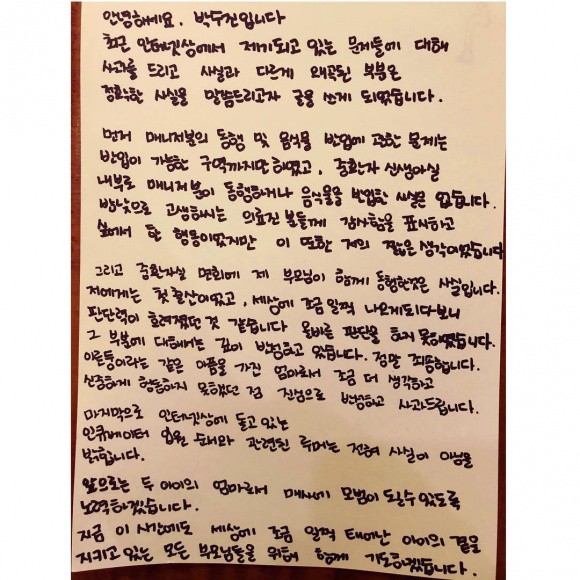 안녕하세요. 박수진입니다
최근 인터넷상에서 제기되고 있는 문제들에 대해
사과를 드리고 사실과 다르게 왜곡된 부분은
정확한 사실을 말씀드리고자 글을 쓰게 되었습니다.
먼저 매니저분의 동행 및 음식물 반입에 관한 문제는
반입이 가능한 구역까지만 하였고, 중환자 신생아실
내부로 매니저분이 동행하거나 음식물을 반입한 사실은 없습니다.
밤낮으로 고생하시는 의료진분들께 감사함을 표시하고
싶어서 한 행동이었지만 이 또한 저의 짧은 생각이었습니다
그리고 중환자실 면회에 제 부모님이 함께 동행한것은 사실입니다.
저에게는 첫 출산이었고, 세상에 조금 일찍 나오게되다보니
판단력이 흐려졌던 것 같습니다 올바른 판단을 하지 못하였습니다.
그 부분에 대해서는 깊이 반성하고 있습니다. 정말 죄송합니다.
이른둥이라는 같은 아픔을 가진 엄마로서 조금 더 생각하고
신중하게 행동하지 못했던 점 진심으로 반성하고 사과드립니다.
마지막으로 인터넷상에 돌고 있는
인큐베이터 입원 순서와 관련된 루머는 전혀 사실이 아님을
밝힙니다.
앞으로는 두 아이의 엄마로서 매사에 모범이 될수 있도록
노력하겠습니다.
지금 이 시간에도 세상에 조금 일찍 태어난 아이의 곁을
지키고 있는 모든 부모님들을 위해 함께 기도하겠습니다.